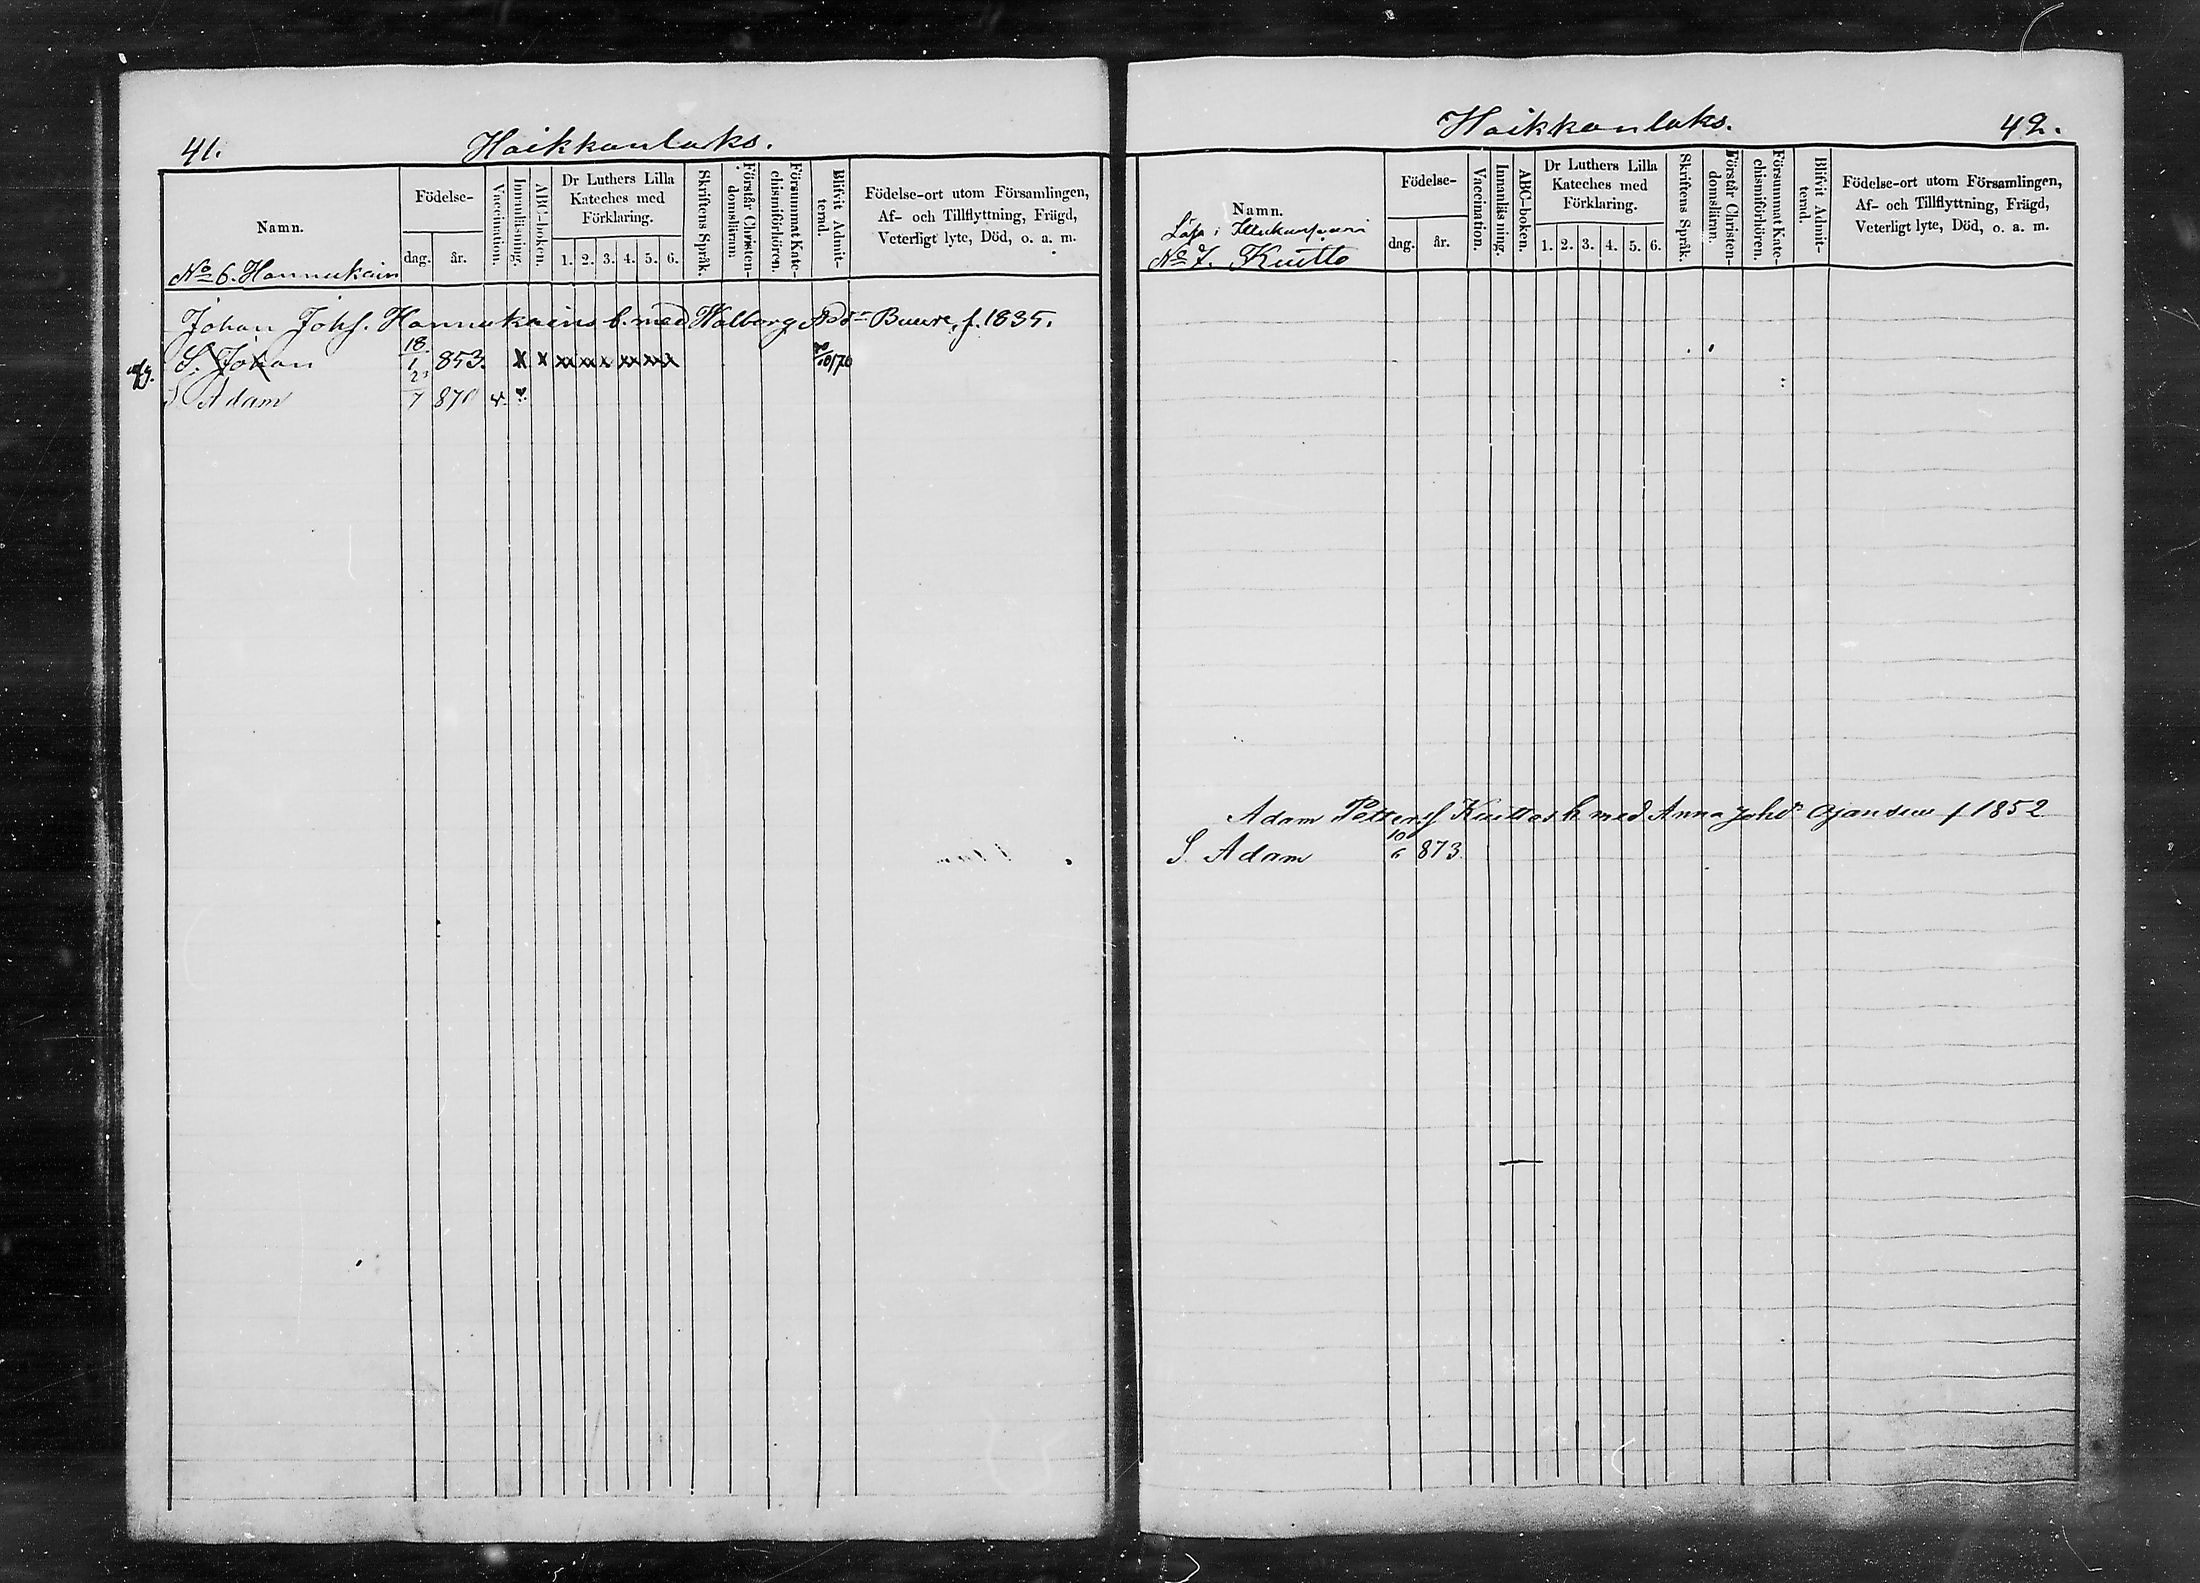 41.
Haikkanlaks.
Namn.
Födelse-
dag.
år.
Vaccination.
Innanläsning.
ABC-boken.
Dr Luthers Lilla
Kateches med
Förklaring.
1. 2. 3. 4. 5. 6.
Skriftens Språk.
Förstår Christen-
domsläran.
Försummat Kate-
chismiförhören.
Blifvit Admit-
terad.
Födelse-ort utom Församlingen,
Af- och Tillflyttning, Frägd,
Veterligt lyte, Död, o. a. m.
No 6. Hannukain
Johan Johs. Hannukains h. med Walborg Buure, f. 1835.
S. Johan 18/1 853. x x xx xx x xx xx x /10/70
S. Adam 7 870 v.
Haikkanlaks.
42.
Namn.
Födelse-
dag.
år.
Vaccination.
Innanläsning.
ABC-boken.
Dr Luthers Lilla
Kateches med
Förklaring.
1. 2. 3. 4. 5. 6.
Skriftens Språk.
Förstår Christen-
domsläran.
Försummat Kate-
chismiförhören.
Blifvit Admit-
terad.
Födelse-ort utom Församlingen,
Af- och Tillflyttning, Frägd,
Veterligt lyte, Död, o. a. m.
No 7. Kuitto
Adam Petterss Kuittos h med Anna Johdr f 1852
S. Adam 10/6 873.